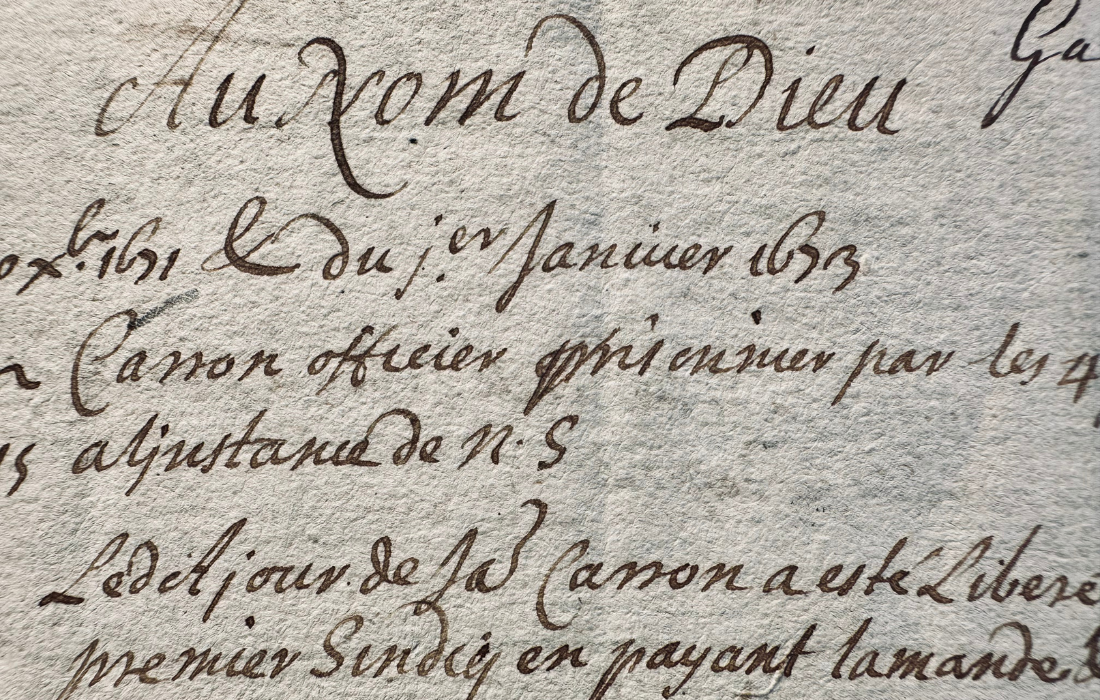 Au Nom de Dieu Ga
xbr. 1671 & du jer Janiuer 1673
Carron officier prisonnier par les 4
a ljnstance de N. S
Ledit jour de Ja Carron a esté Liberé
premier Sindiq en payant lamande